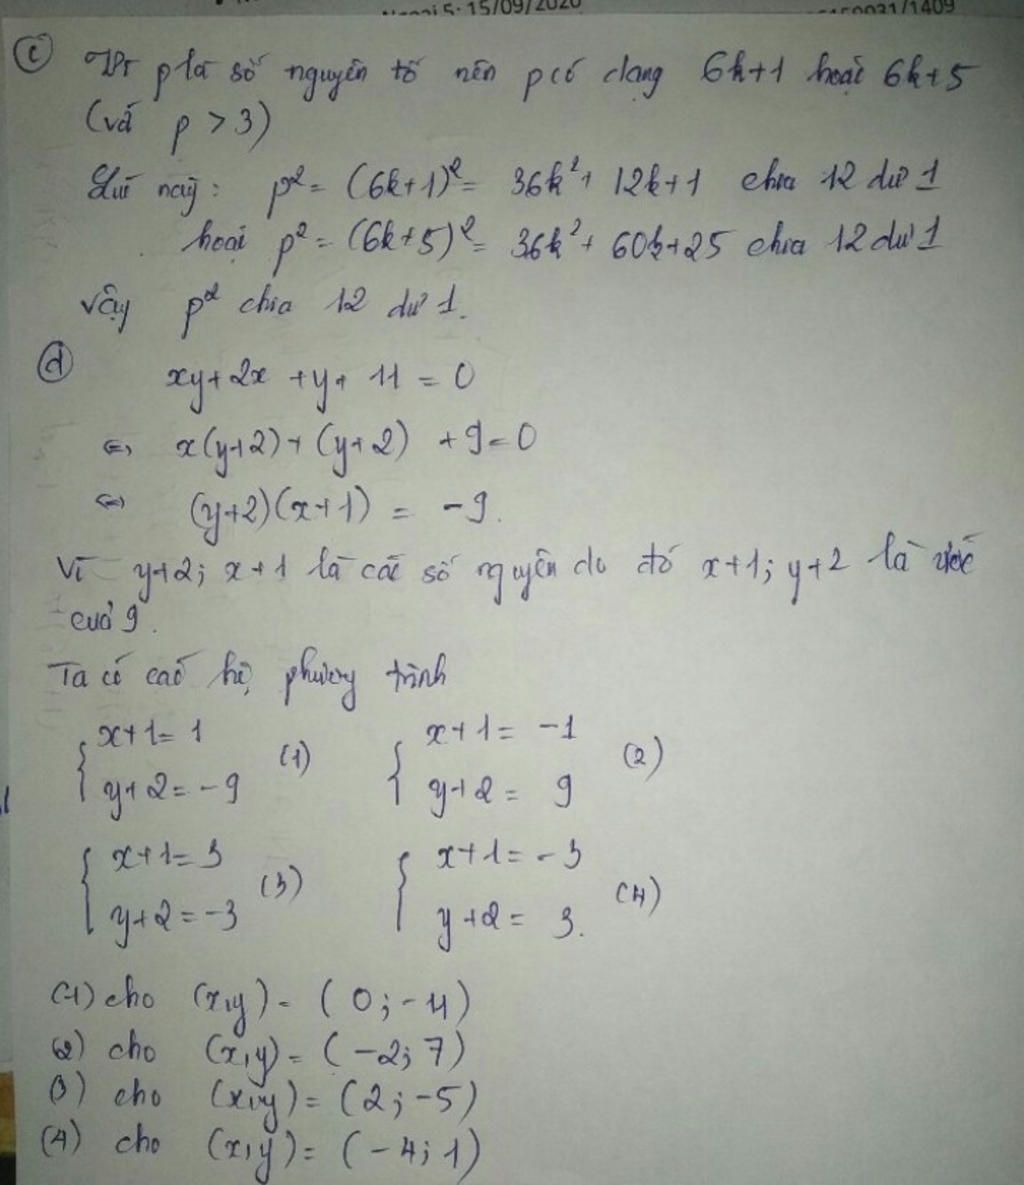 15/09/2020
/1409
c Vì p là số nguyên tố nên p có dạng 6k+1 hoặc 6k+5
(và p > 3)
Lúc này: p² = (6k+1)² = 36k² + 12k+1 chia 12 dư 1
hoặc p² = (6k+5)² = 36k² + 60k+25 chia 12 dư 1
Vậy p² chia 12 dư 1.
d xy+2x +y+ 11 = 0
⇔ x(y+2) + (y+2) +9=0
⇔ (y+2)(x+1) = -9.
Vì y+2; x+1 là các số nguyên do đó x+1; y+2 là ước
của 9.
Ta có các hệ phương trình
{ x+1= 1 y+2= -9 (1) { x+1= -1 y+2= 9 (2)
{ x+1= 3 y+2= -3 (3) { x+1= -3 y+2= 3. (4)
(1) cho (x,y) = ( 0; -11)
(2) cho (x,y) = ( -2; 7)
(3) cho (x,y) = (2; -5)
(4) cho (x,y) = ( -4; 1)